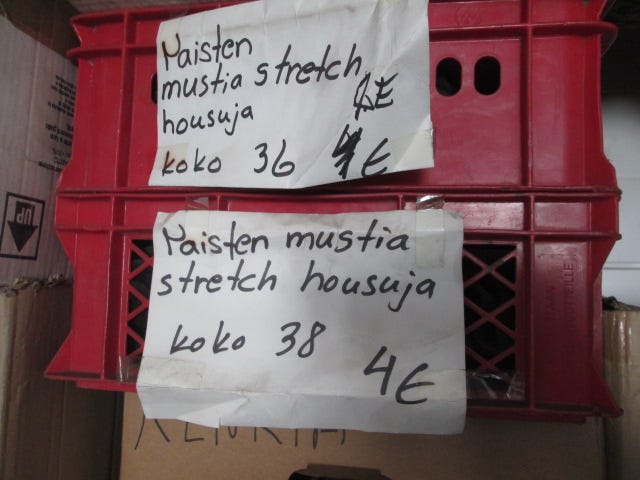 UP
Naisten
mustia stretch
housuja
koko 36 4€
Naisten mustia
stretch housuja
koko 38
4€